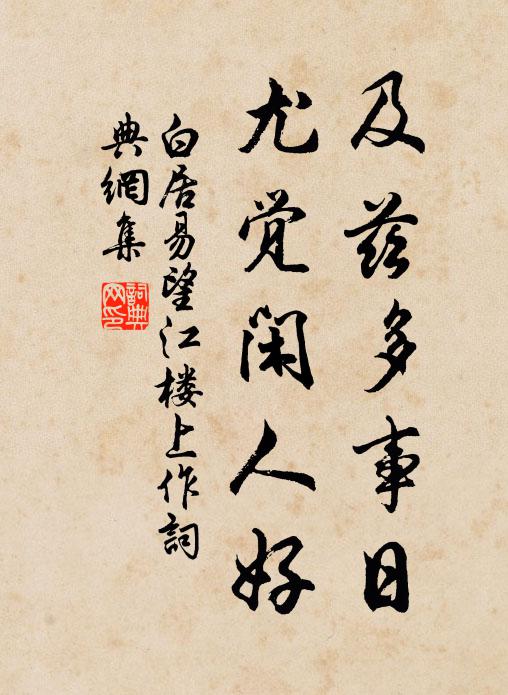 及茲多事日
尤覺閑人好
白居易望江楼上作詞
典網集
詞典
网印